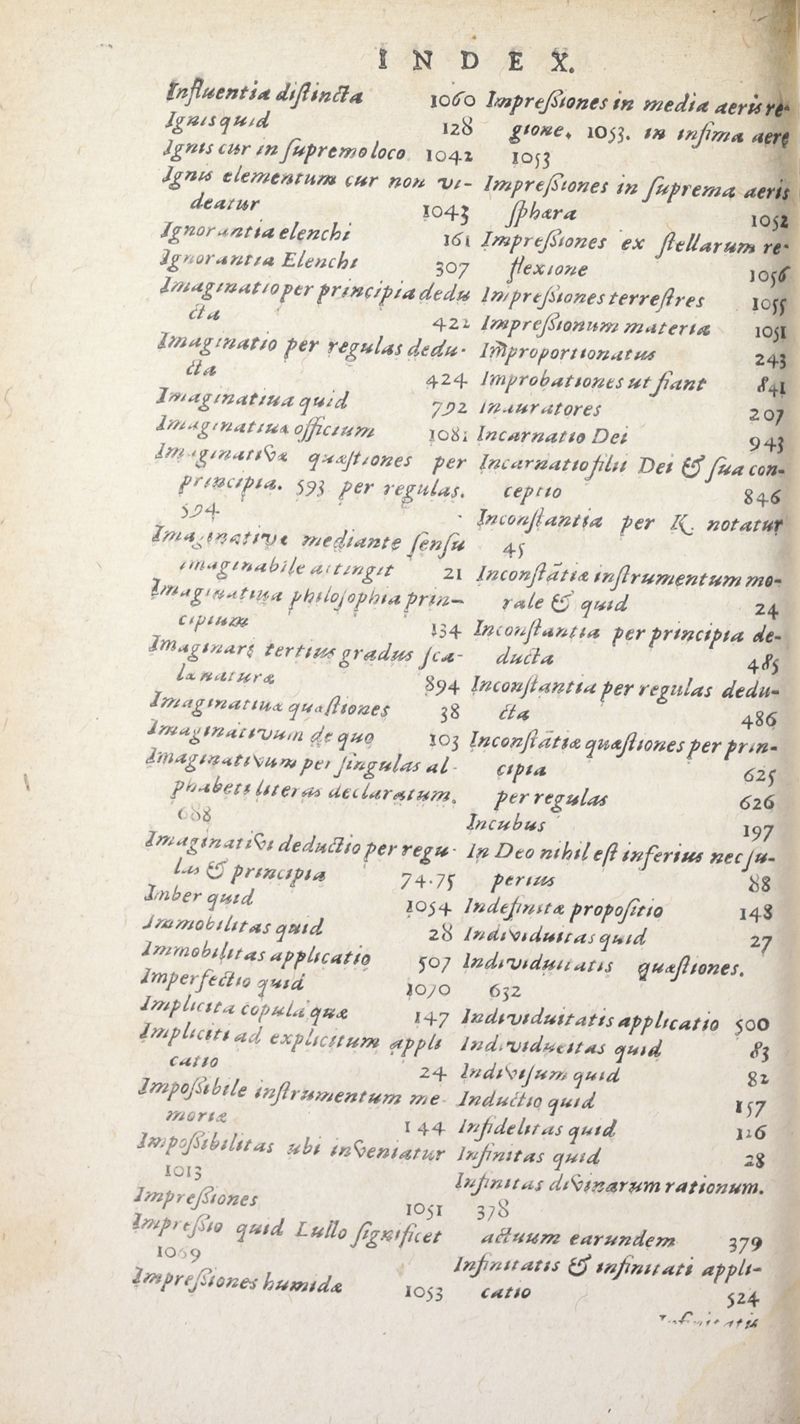 INDEX.
Influentia distincta 1060
Ignis quid 128
Ignis cur in supremo loco 1042
Ignis elementum cur non vi-
deatur 1043
Ignorantia elenchi 161
Ignorantia Elenchi 307
Imaginatio per principia dedu
cta 422
Imaginatio per regulas dedu-
cta 424
Imaginatiua quid 792
Imaginatiuæ officium 1081
Imaginativæ quæstiones per
principia. 593 per regulas.
594
Imaginative mediante sensu
imaginabile attingit 21
Imaginatiua philosophia prin-
cipium 134
Imaginari tertius gradus sca-
læ naturæ 894
Imaginatiuæ quæstiones 38
Imaginativum de quo 103
Imaginativum per singulas al-
phabeti literas declaratum.
688
Imaginativi deductio per regu-
las & principia 74.75
Imber quid 1054
Immobilitas quid 28
Immobilitas applicatio 507
Imperfectio quid 1070
Implicita copula quæ 147
Impliciti ad explicitum appli
catio 24
Impossibile instrumentum me-
moriæ 144
Impossibilitas ubi inveniatur
1013
Impressiones 1051
Impressio quid Lullo significet
1069
Impressiones humidæ 1053
Impressiones in media aeris re-
gione. 1053. in infima aere
1053
Impressiones in suprema aeris
sphæra 1052
Impressiones ex stellarum re-
flexione 1056
Impressiones terrestres 1055
Impressionum materia 1051
Improportionatus 243
Improbationes ut fiant 841
Inauratores 207
Incarnatio Dei 943
Incarnatio filii Dei & sua con-
ceptio 846
Inconstantia per K. notatur
45
Inconstãtiæ instrumentum mo-
rale & quid 24
Inconstantia per principia de-
ducta 485
Inconstantia per regulas dedu-
cta 486
Inconstãtiæ quæstiones per prin-
cipia 625
per regulas 626
Incubus 197
In Deo nihil est inferius nec su-
perius 88
Indefinita propositio 148
Individuitas quid 27
Individuitatis quæstiones.
632
Individuitatis applicatio 500
Individueitas quid 83
Indivisum quid 82
Inductio quid 157
Infidelitas quid 126
Infinitas quid 28
Infinitas divinarum rationum.
378
actuum earundem 379
Infinitatis & infinitati appli-
catio 524